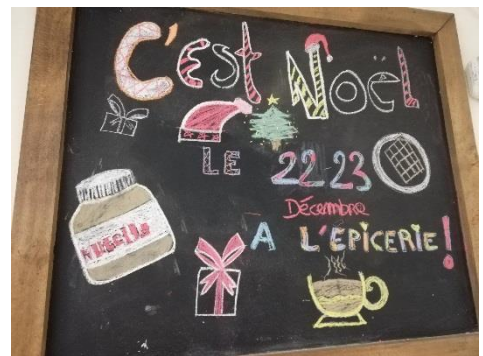 C'est Noël
LE 22 23
Décembre
A L'EPICERIE!
Nutella